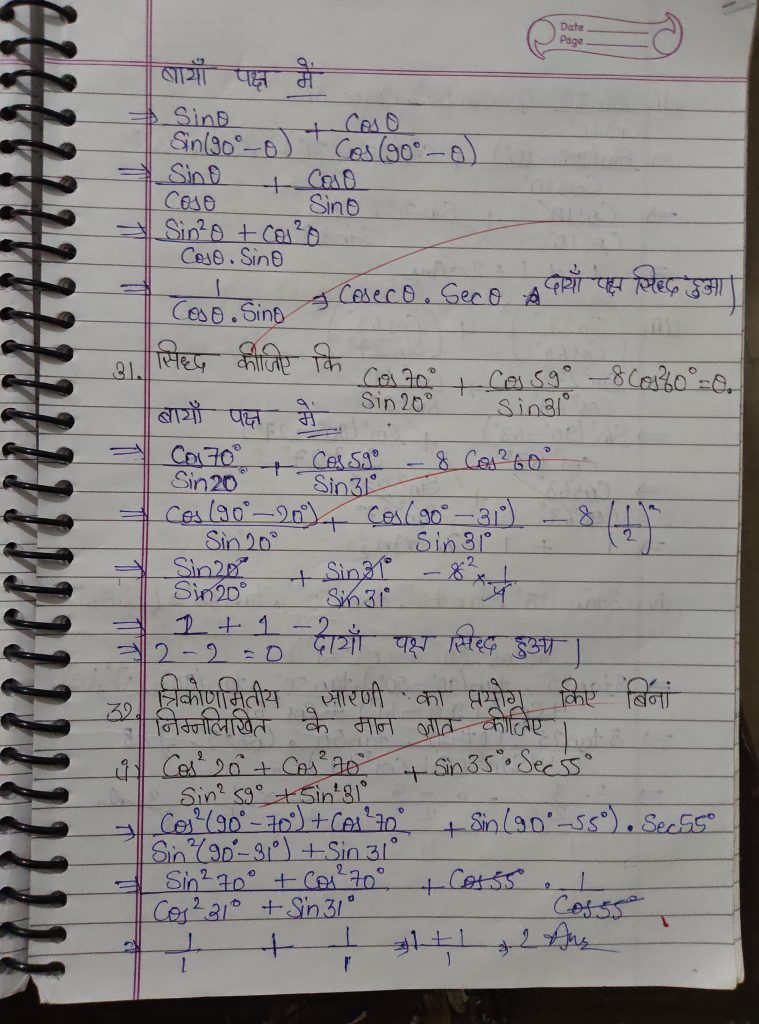 Date
Page
बायाँ पक्ष में
⇒ Sinθ/Sin(90°-θ) + Cosθ/Cos(90°-θ)
⇒ Sinθ/Cosθ + Cosθ/Sinθ
⇒ Sin²θ + Cos²θ/Cosθ.Sinθ
⇒ 1/Cosθ.Sinθ ⇒ Cosecθ.Secθ दायाँ पक्ष सिद्ध हुआ|
31. सिद्ध कीजिए कि Cos70°/Sin20° + Cos59°/Sin31° - 8Cos²60° = 0.
बायाँ पक्ष में
⇒ Cos70°/Sin20° + Cos59°/Sin31° - 8 Cos²60°
⇒ Cos(90°-20°)/Sin20° + Cos(90°-31°)/Sin31° - 8 (1/2)²
⇒ Sin20°/Sin20° + Sin31°/Sin31° - 8² × 1/4
⇒ 1 + 1 - 2
⇒ 2 - 2 = 0 दायाँ पक्ष सिद्ध हुआ|
32. त्रिकोणमितीय सारणी का प्रयोग किए बिना
निम्नलिखित के मान ज्ञात कीजिए|
Cos²20° + Cos²70°/Sin²59° + Sin²31° + Sin35°.Sec55°
⇒ Cos²(90°-70°) + Cos²70°/Sin²(90°-31°) + Sin31° + Sin(90°-55°).Sec55°
⇒ Sin²70° + Cos²70°/Cos²31° + Sin31° + Cos55°.1/Cos55°
⇒ 1/1 + 1/1 ⇒ 1+1/1 ⇒ 2 Ans